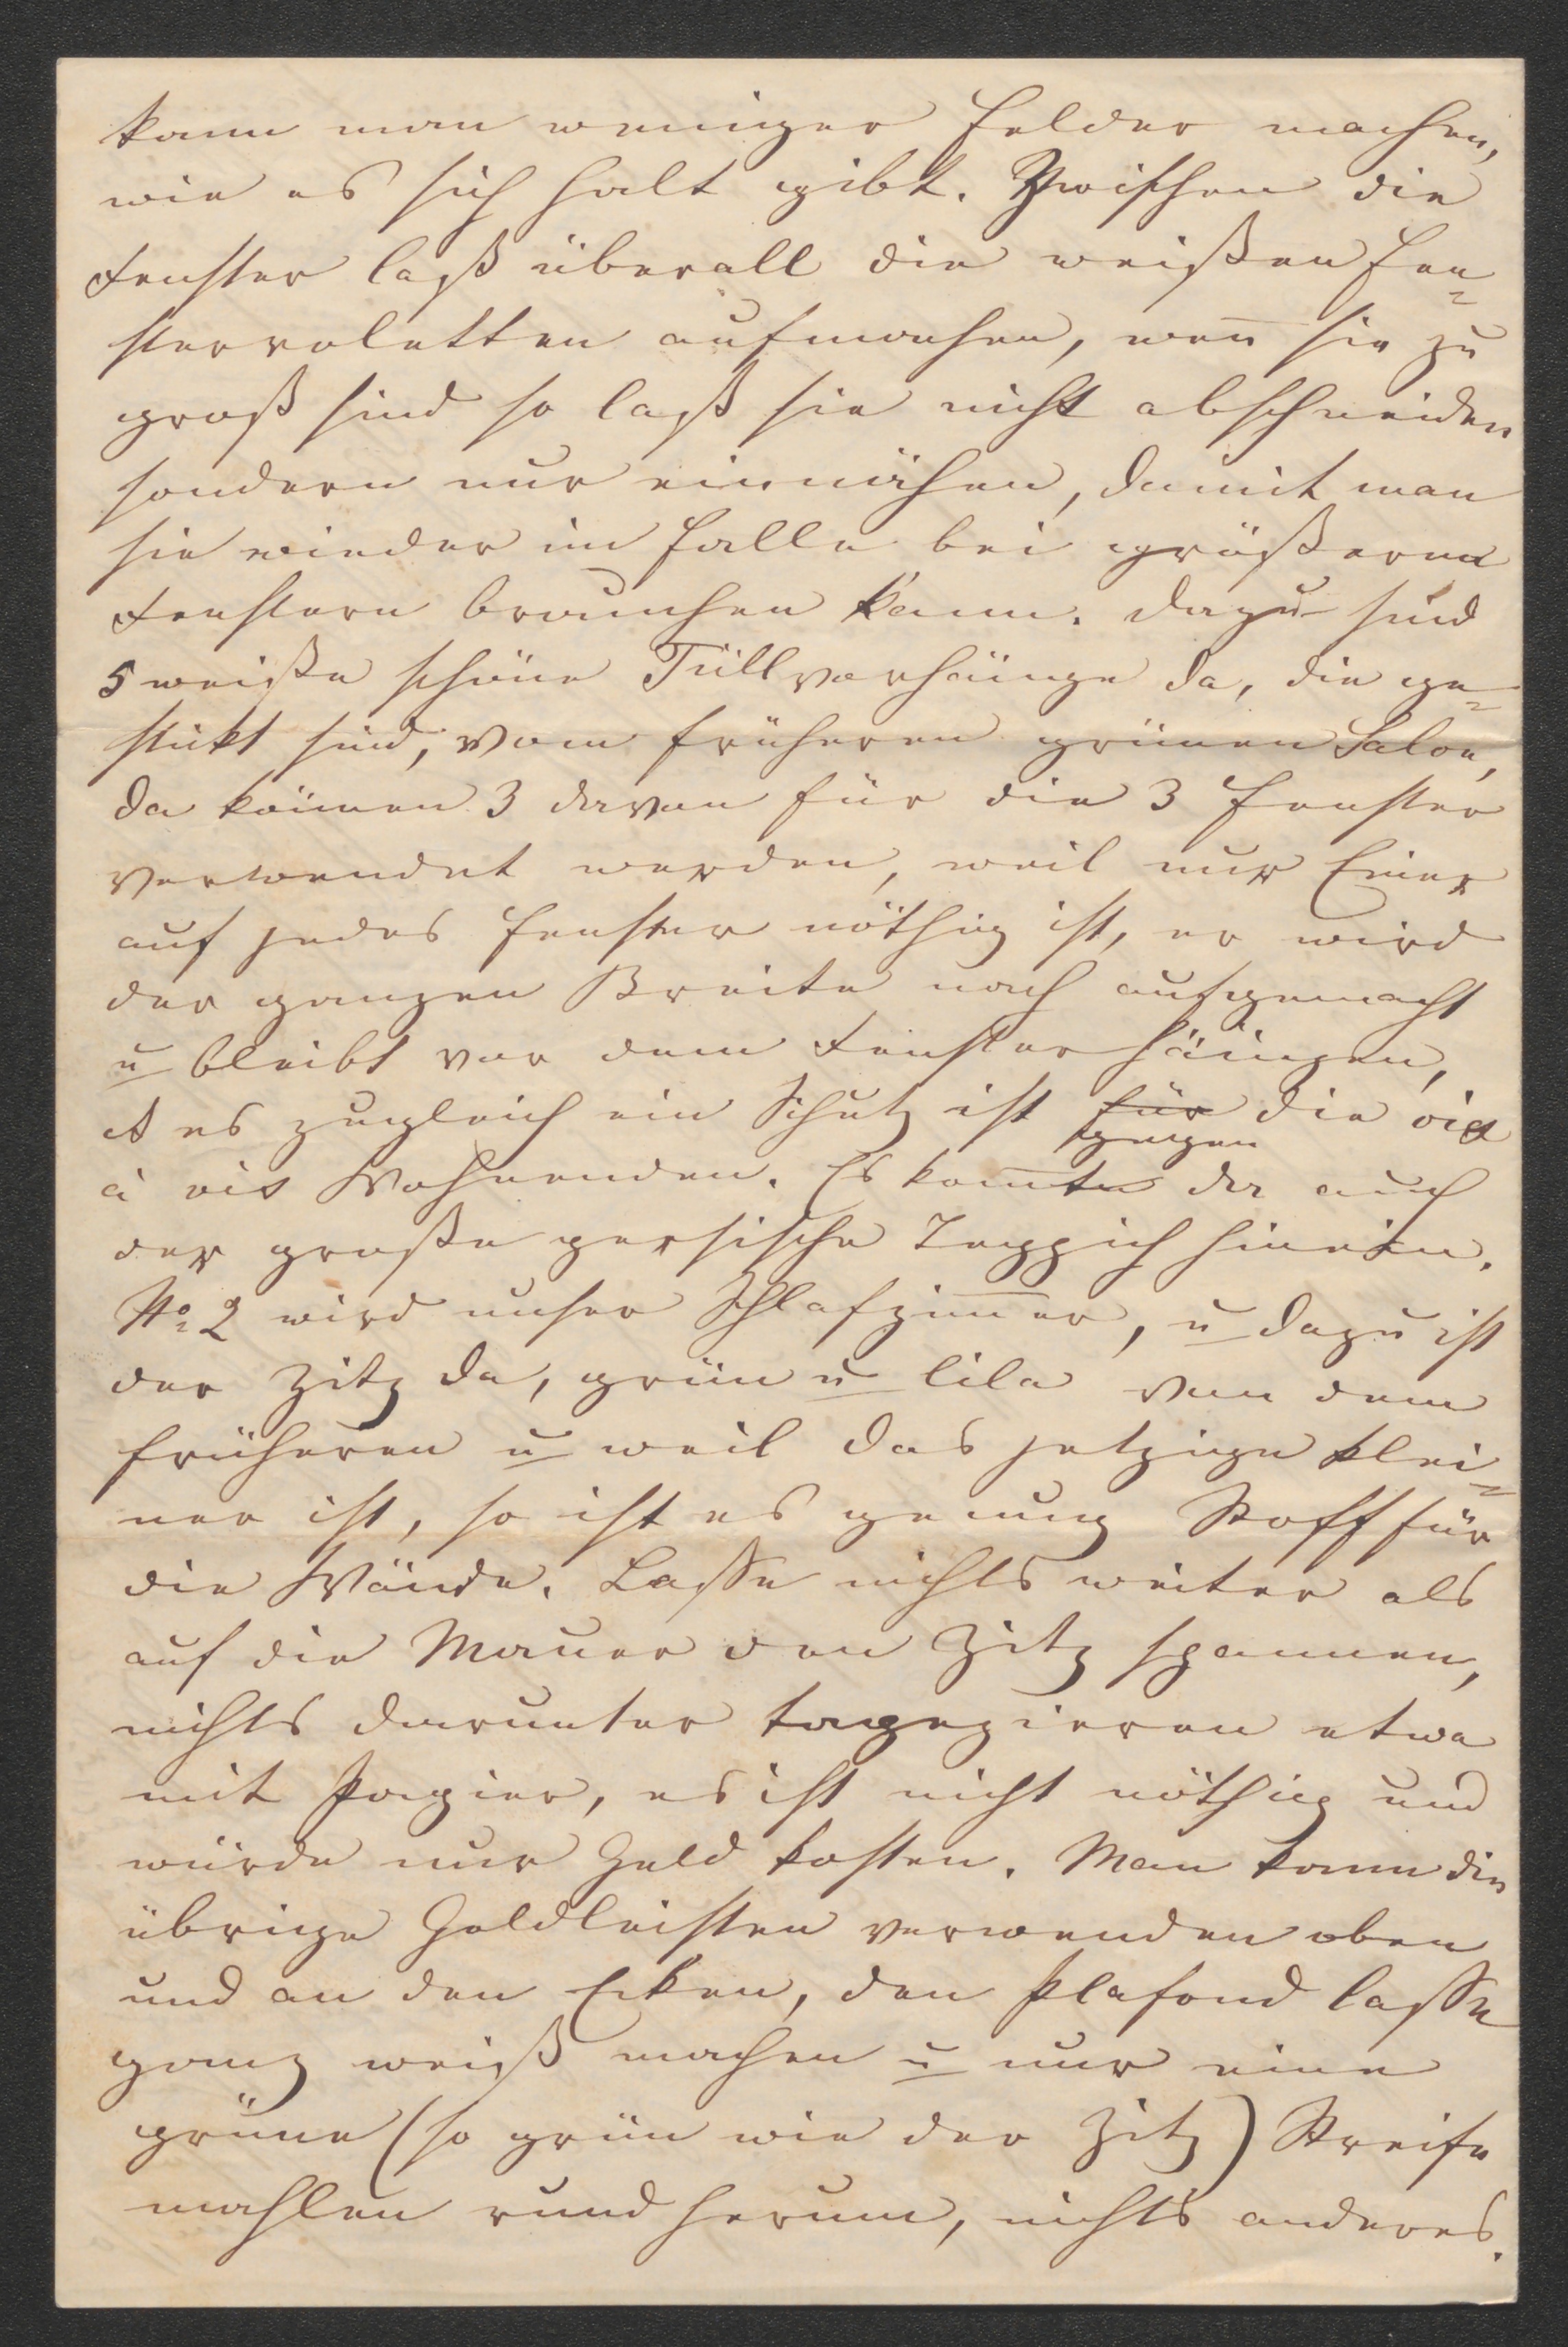 kann man weniger Felder machen,
wie es sich halt gibt. Zwischen die
Fenster laß überall die weißen Fen=
sterroletten aufmachen, weñ sie zu
groß sind so laß sie nicht abschneiden
sondern nur einnähen, damit man
sie wieder im Falle bei größeren
Fenstern brauchen kann. Dazu sind
5 weiße schöne Tüllvorhänge da, die ge=
stikt sind, vom früheren grünen Salon,
da können 3 davon für die 3 Fenster
verwendet werden, weil nur Einer
auf jedes Fenster nöthig ist, er wird
der ganzen Breite nach aufgemacht
u bleibt vor dem Fenster hängen,
es zugleich ein Schutz ist für die vis
gegen
à vis Wohnenden. Es kom̃t da auch
der große persische Teppich hinein.
No 2 wird unser Schlafzim̃er, u dazu ist
der Zitz da, grün u lila von dem
früheren u weil das jetzige klei=
ner ist, so ist es genung Stoff für
die Wände. Lasse nichts weiter als
auf die Mauer den Zitz spannen,
nichts darunter tapezieren etwa
mit Papier, es ist nicht nöthig und
würde nur Geld kosten. Man kann die
übrige Goldleisten verwenden oben
und an den Ecken, den Plafond lasse
ganz weiß machen u nur eine
grüne (so grün wie der Zitz) Streife
mahlen rund herum, nichts anderes.